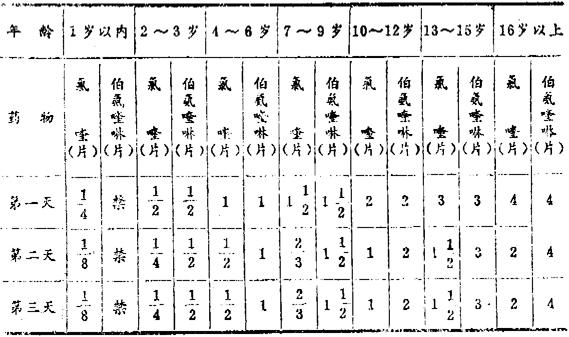 年龄 1岁以内 2～3岁 4～6岁 7～9岁 10～12岁 13～15岁 16岁以上
药物 氯喹(片) 伯氨喹啉(片) 氯喹(片) 伯氨喹啉(片) 氯喹(片) 伯氨喹啉(片) 氯喹(片) 伯氨喹啉(片) 氯喹(片) 伯氨喹啉(片) 氯喹(片) 伯氨喹啉(片) 氯喹(片) 伯氨喹啉(片)
第一天 1/4 禁 1/2 1/2 1 1 1 1/2 1 1/2 2 2 3 3 4 4
第二天 1/8 禁 1/4 1/2 1/2 1 2/3 1 1/2 1 2 1 1/2 3 2 4
第三天 1/8 禁 1/4 1/2 1/2 1 2/3 1 1/2 1 2 1 1/2 3 2 4